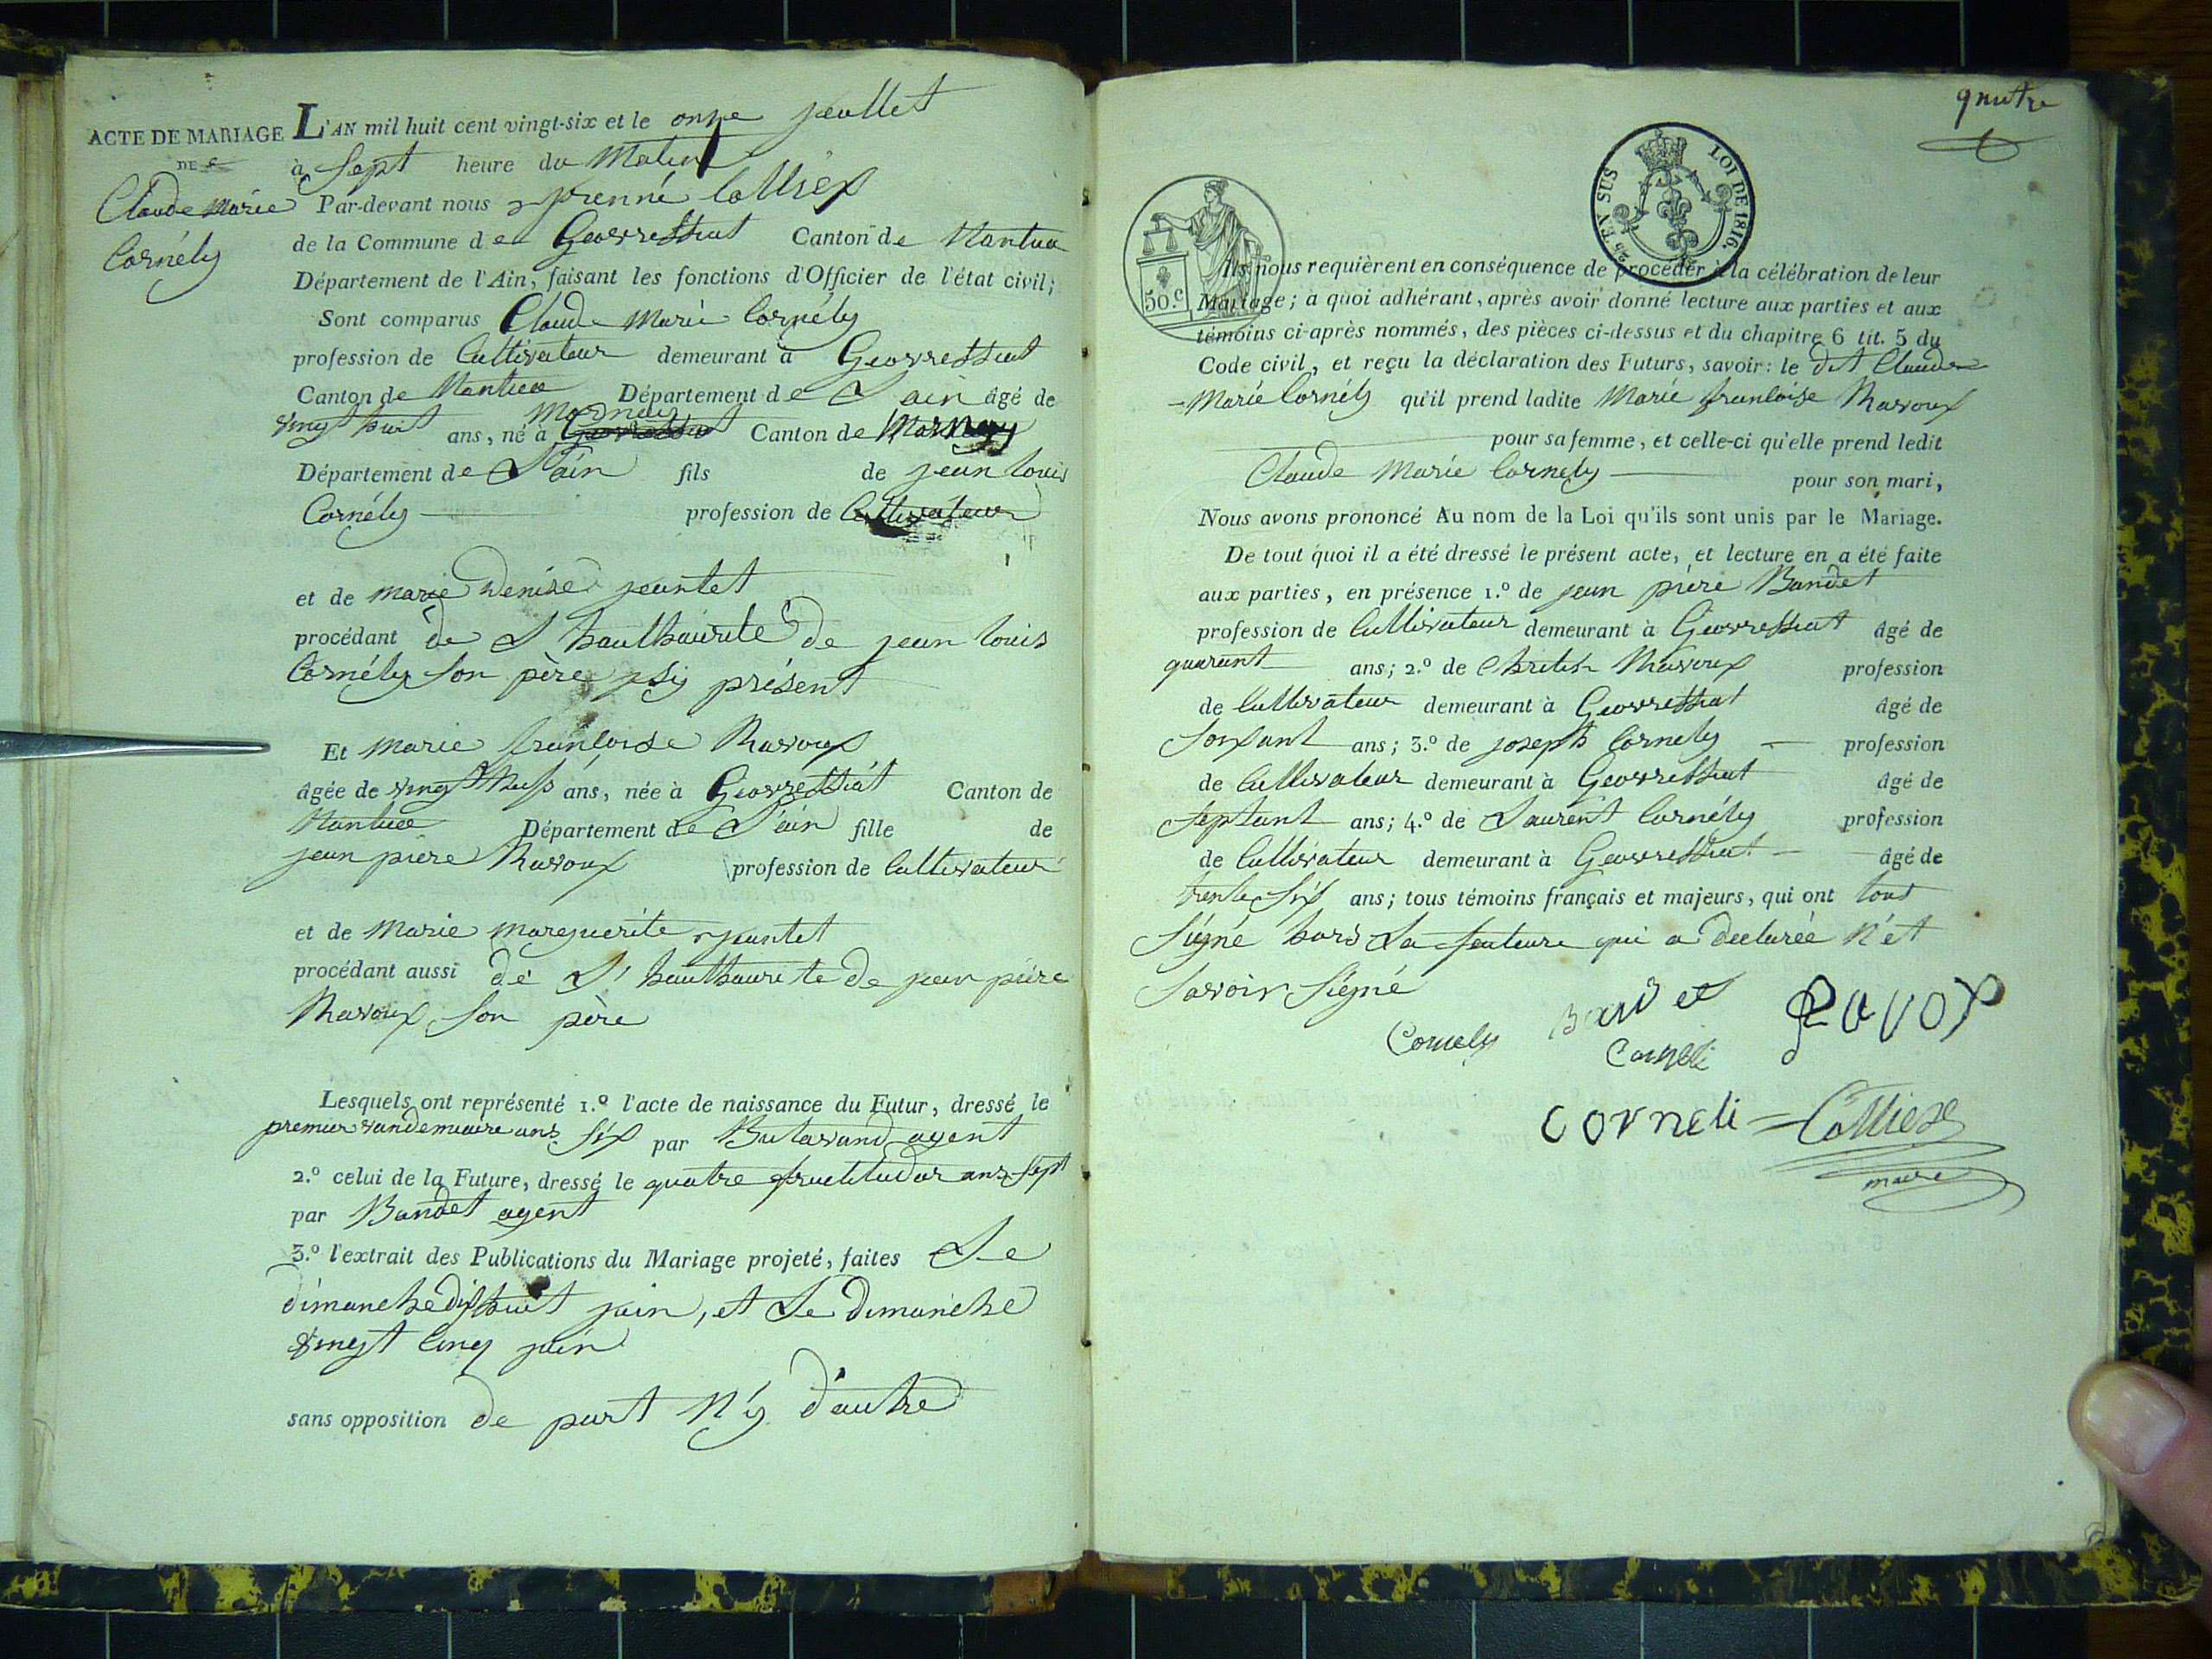 ACTE DE MARIAGE
DE
Claude Marie
Cornély
L'AN mil huit cent vingt-six et le onze jeullet
à Sept heure du Matin
Par-devant nous prenné Colliex
de la Commune de Geovressiat Canton de Nantua
Département de l'Ain, faisant les fonctions d'Officier de l'état civil;
Sont comparus Claude Marie Cornély
profession de Cultivateur demeurant à Geovressiat
Canton de Nantua Département de L'ain âgé de
Mornay
vingt huit ans, né à Geovressiat Canton de Mornay
Département de L'ain fils de jean louis
Cornély profession de Cultivateur
et de marie Denise jeantet
procédant de L'hauthaurité de jean louis
Cornély Son père y si présent
Et marie franloise Ravoux
âgée de vingt ans, née à Geovressiat Canton de
Nantua Département de L'ain fille de
jean piere Ravoux profession de Cultivateur
et de Marie marguerite jeantet
procédant aussi de L'hauthaurite de jean piere
Ravoux Son père
Lesquels ont représenté 1.º l'acte de naissance du Futur, dressé le
premier vandemiaire ans Six par Butavand agent
2.º celui de la Future, dressé le quatre fructitudor ans Sept
par Bandet agent
3.º l'extrait des Publications du Mariage projeté, faites Le
dimanche dix huit juin, et Le dimanche
vingt Cinq juin
sans opposition de part N'y d'autre
quatre
50.c
25 EN SUS
LOI DE 1816.
Ils nous requièrent en conséquence de procéder à la célébration de leur
Mariage; à quoi adhérant, après avoir donné lecture aux parties et aux
témoins ci-après nommés, des pièces ci-dessus et du chapitre 6 tit. 5 du
Code civil, et reçu la déclaration des Futurs, savoir: le dit Claude
Marie Cornély qu'il prend ladite Marie franloise Ravoux
pour sa femme, et celle-ci qu'elle prend ledit
Claude Marie Cornely pour son mari,
Nous avons prononcé Au nom de la Loi qu'ils sont unis par le Mariage.
De tout quoi il a été dressé le présent acte, et lecture en a été faite
aux parties, en présence 1.º de jean pière Bandet
profession de Cultivateur demeurant à Geovressiat âgé de
quarant ans; 2.º de Ravoux profession
de Cultivateur demeurant à Geovressiat âgé de
Soixant ans; 3.º de joseph Cornely profession
de Cultivateur demeurant à Geovressiat âgé de
Septant ans; 4.º de Laurent Cornély profession
de Cultivateur demeurant à Geovressiat âgé de
trente Six ans; tous témoins français et majeurs, qui ont tous
Signé hors La feuteure qui a declarée N'ét
Savoir Signé
Cornely Bandet Ravox
Corneli
corneli Colliex
maire